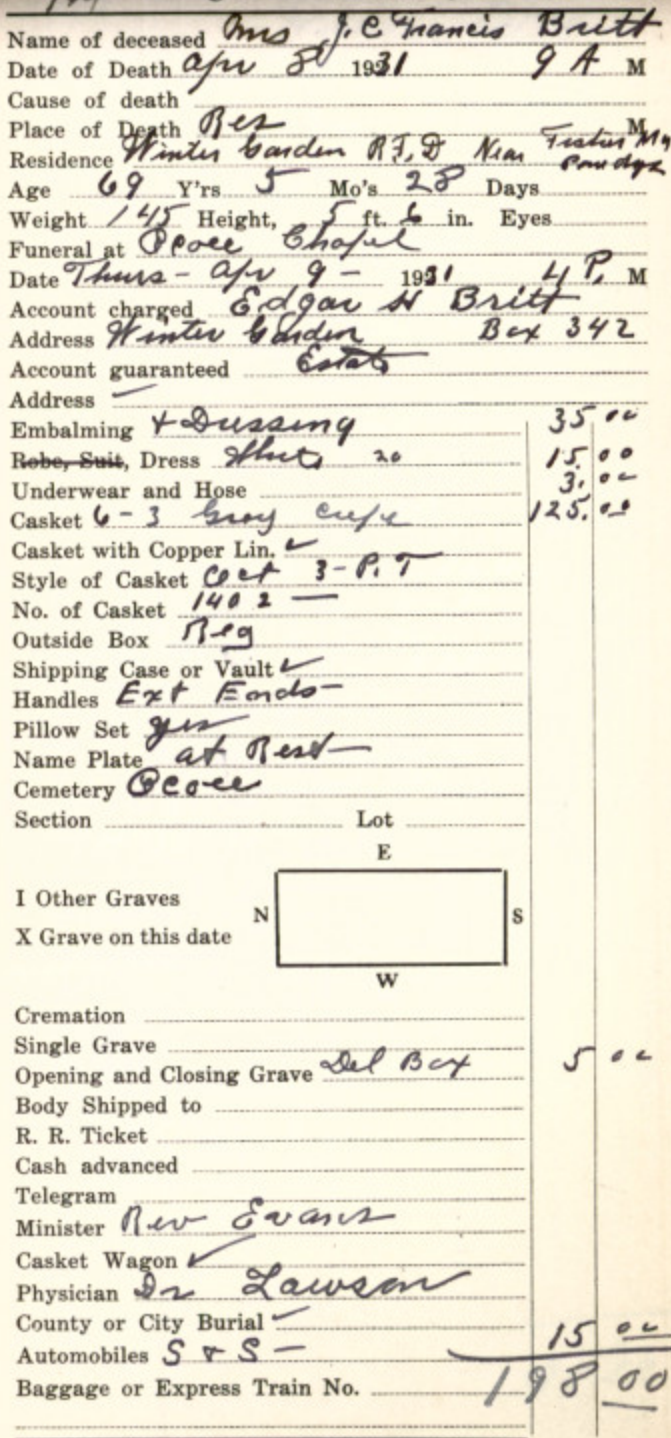 Name of deceased Mrs J. C. Francis Britt
Date of Death Apr 8 1931 9 A M
Cause of death
Place of Death Res M
Residence Winter Garden R.F.D Near
Age 69 Y'rs 5 Mo's 28 Days
Weight 145 Height, 5 ft. 6 in. Eyes
Funeral at Ocoee Chapel
Date Thurs - Apr 9 - 1931 4 P. M
Account charged Edgar H Britt
Address Winter Garden Box 342
Account guaranteed Estate
Address
Embalming + Dressing 35 00
Robe, Suit, Dress White 20 15.00
Underwear and Hose 3.00
Casket 6-3 Gray Crepe 125.00
Casket with Copper Lin. ✓
Style of Casket Oct 3-P.T
No. of Casket 1402 —
Outside Box Reg
Shipping Case or Vault ✓
Handles Ext Ends -
Pillow Set yes
Name Plate at Rest —
Cemetery Ocoee
Section Lot
E
I Other Graves
N S
X Grave on this date
W
Cremation
Single Grave
Opening and Closing Grave Del Box 5 00
Body Shipped to
R. R. Ticket
Cash advanced
Telegram
Minister Rev Evans
Casket Wagon ✓
Physician Dr Lawson
County or City Burial ✓
Automobiles S & S - 15 00
Baggage or Express Train No. 198 00